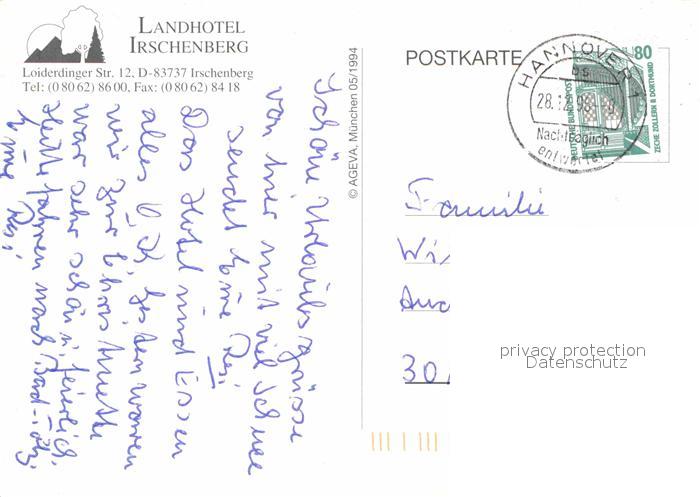 LANDHOTEL
IRSCHENBERG
Loiderdinger Str. 12, D-83737 Irschenberg
Tel: (0 80 62) 86 00, Fax: (0 80 62) 84 18
© AGEVA, München 05/1994
POSTKARTE
HANNOVER 1
bs
28.12.98
Nachträglich
entwertet
80
DEUTSCHE BUNDESPOST
ZECHE ZOLLERN II DORTMUND
Schöne Urlaubsgrüsse
von hier mit viel Schnee
sendet Resi
Das Hotel und Essen
alles O.K. gestern waren
wir zur Christmette
war sehr schön u. feierlich.
Heute fahren nach Bad-Tölz.
Resi
Familie
Wi
Auc
30
privacy protection
Datenschutz